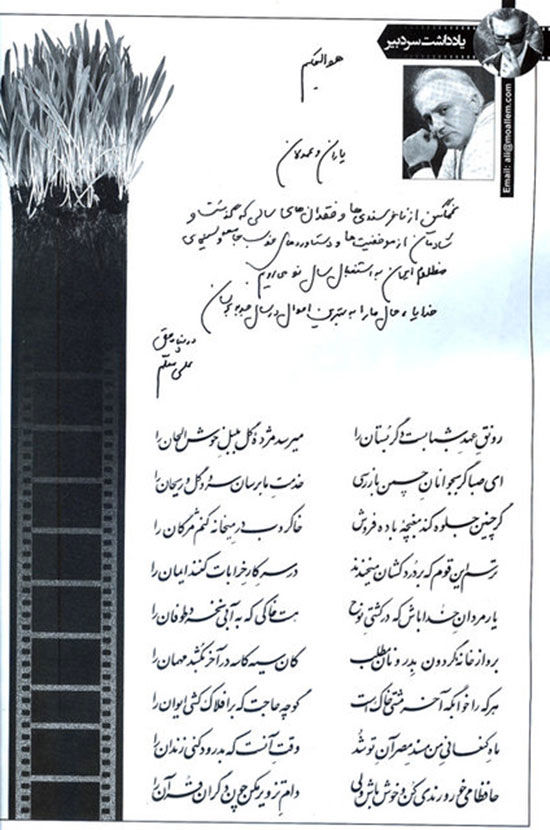 یادداشت سردبیر
Email: ali@moallem.com
هوالحکیم
یاران و همدلان
غمگین از ناخرسندی‌ها و فقدان‌های سالی که گذشت و
شادمان از موفقیت‌ها و دستاوردهای خوب جامعه و سینمای
مظلوم ایران به استقبال سال نو می‌رویم
خدایا، حال ما را به بهترین احوال در سال جدید برسان
در پناه حق
علی معلم
رونق عهد شبابست دگر بستان را میرسد مژدهٔ گل بلبل خوش الحان را
ای صبا گر بجوانان چمن باز رسی خدمت ما برسان سرو و گل و ریحان را
گر چنین جلوه کند مغبچهٔ باده فروش خاکروب در میخانه کنم مژگان را
ترسم این قوم که بر دردکشان میخندند در سر کار خرابات کنند ایمان را
یار مردان خدا باش که در کشتی نوح هست خاکی که به آبی نخرد طوفان را
برو از خانهٔ گردون بدر و نان مطلب کان سیه کاسه در آخر بکشد مهمان را
هر که را خوابگه آخر مشتی خاک است گو چه حاجت که بر افلاک کشی ایوان را
ماه کنعانی من مسند مصر آن تو شد وقت آنست که بدرود کنی زندان را
حافظا می خور و رندی کن و خوش باش ولی دام تزویر مکن چون دگران قرآن را